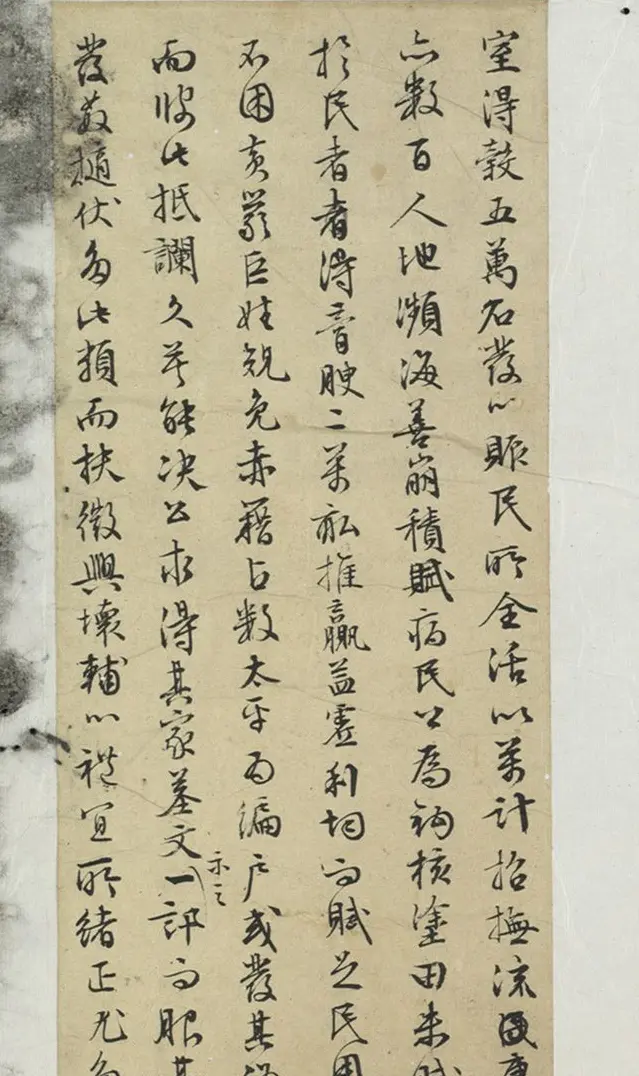 室得穀五萬石發以賑民所全活以萬計招撫流
亦數百人地瀕海善崩積賦病民公為鉤核塗田未賦
於民者者得膏腴二萬畝推贏益虛利均而賦足民用
不困黃巖巨姓規免赤籍占數太平為編戶或發其
而彼此抵讕久莫能決公求得其家墓文示之一訊而服其
發姦擿伏多此類而扶微興壞輔以禮宜所緒正尤多